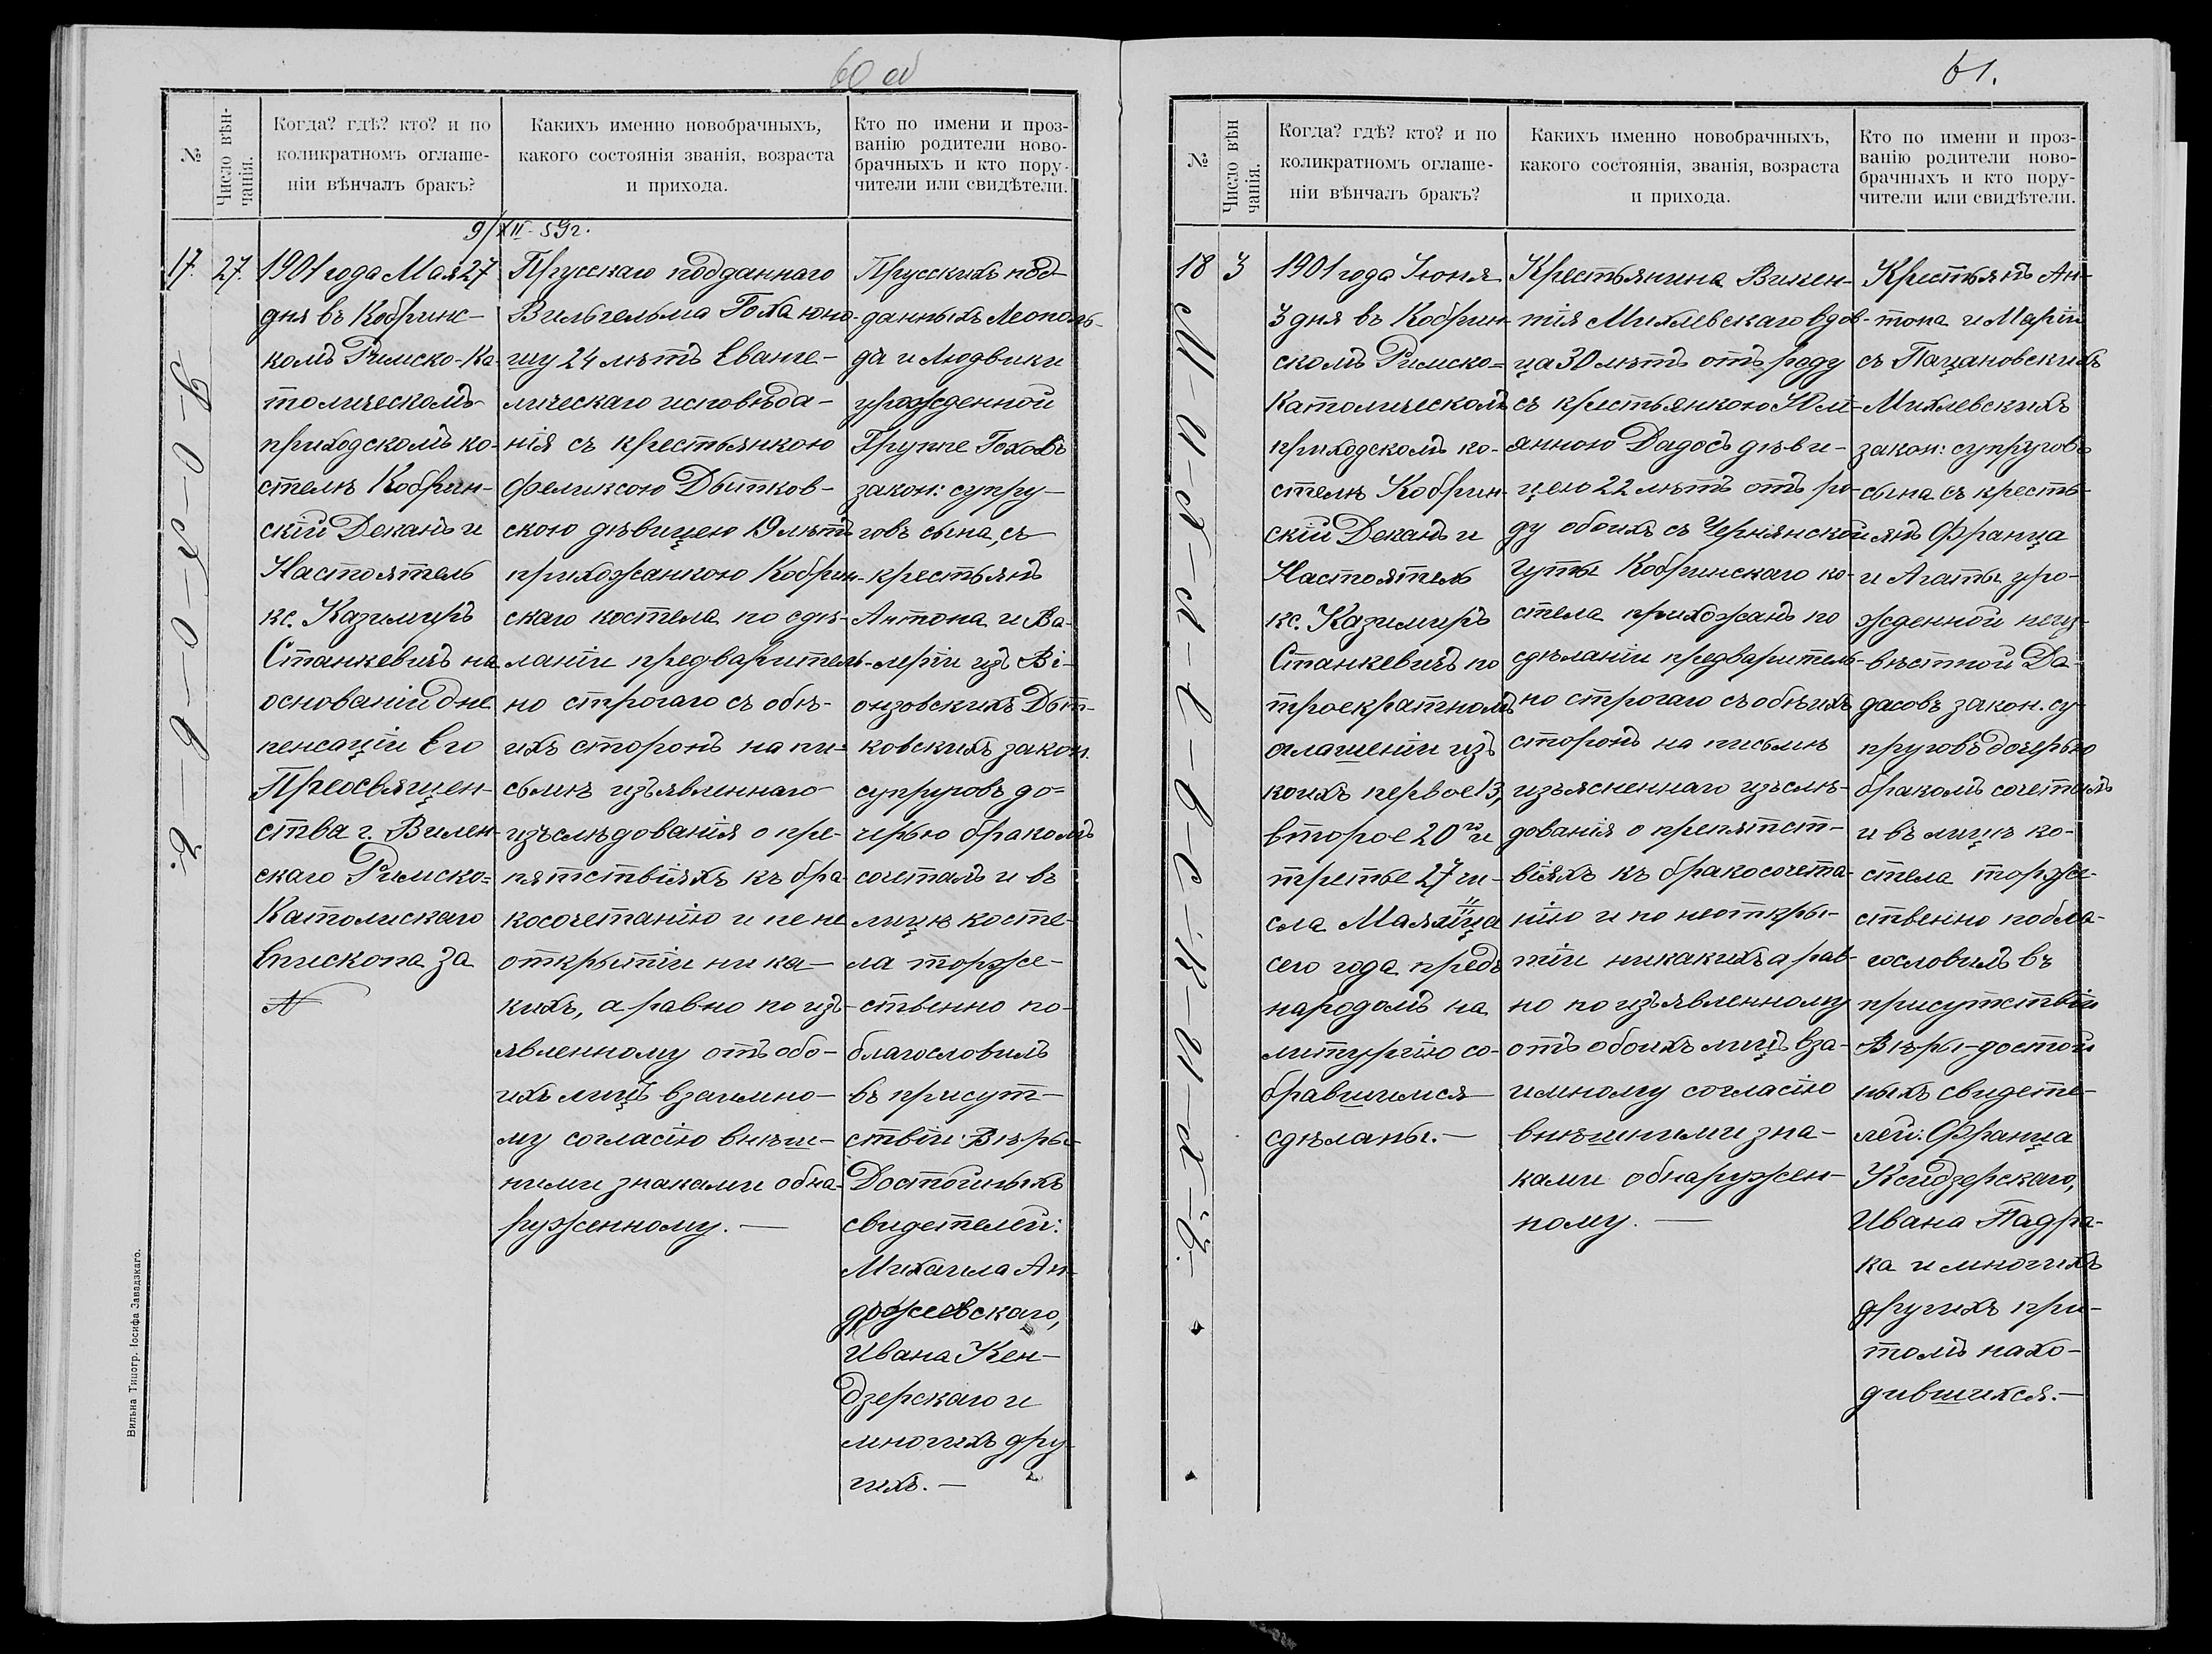 60 об
№
Число вѣн-
чанія.
Когда? гдѣ? кто? и по
коликратномъ оглаше-
ніи вѣнчалъ бракъ?
Какихъ именно новобрачныхъ,
какого состоянія званія, возраста
и прихода.
Кто по имени и проз-
ванію родители ново-
брачныхъ и кто пору-
чители или свидѣтели.
9/XII-59г.
17.
27.
Г-о-х-о-в-ъ
1901 года Мая 27
дня въ Кобринс-
комъ Римско-Ка-
толическомъ
приходскомъ ко-
стелѣ Кобрин-
скій Деканъ и
Настоятель
кс. Казимиръ
Станкевичъ на
основаніи дис
пенсаціи Его
Преосвящен-
ства г. Вилен-
скаго Римско=
Католискаго
Епископа за
№
Прусскаго подданнаго
Вильгельма Гоха юно-
шу 24 лѣтъ Еванге-
лическаго исповѣда-
нія съ крестьянкою
Феликсою Дытков-
скою дѣвицею 19 лѣтъ
прихожанкою Кобрин-
скаго костела по сдѣ-
ланіи предваритель-
но строгаго съ обѣ-
ихъ сторонъ на пи-
сьмѣ изъявленнаго
изслѣдованія о пре-
пятствіяхъ къ бра-
косочетанію и не не
открытіи ника-
кихъ, а равно по изъ-
явленному отъ обо-
ихъ лицъ взаимно-
му согласію внѣш-
ними знаками обна-
руженному.—
Прусскихъ под-
данныхъ Леополь-
да и Людвики
урожденной
Группе Гоховъ
закон: супру-
говъ сына, съ
крестьянъ
Антона и Ва-
леріи изъ Ві-
онзовскихъ Дыт-
ковскихъ закон.
супруговъ до=
черью бракомъ
сочеталъ и въ
лицѣ косте-
ла торже-
ственно по-
благословилъ
въ присут-
ствіи Вѣры-
Достойныхъ
свидетелей:
Михаила Ан-
држеевскаго,
Ивана Кен-
дзерскаго и
многихъ дру-
гихъ.—
Вильна Типогр. Іосифа Завадзкаго.
61.
№
Число вѣн
чанія.
Когда? гдѣ? кто? и по
коликратномъ оглаше-
ніи вѣнчалъ бракъ?
Какихъ именно новобрачныхъ,
какого состоянія, званія, возраста
и прихода.
Кто по имени и проз-
ванію родители ново-
брачныхъ и кто пору-
чители или свидѣтели.
18
3
М-и-х-л-е-в-с-к-и-х-ъ
1901 года Іюня
3 дня въ Кобрин-
скомъ Римско=
Католическомъ
приходскомъ ко-
стелѣ Кобрин-
скій Деканъ и
Настоятель
кс. Казимиръ
Станкевичъ по
троекратномъ
оглашеніи изъ
коихъ первое 13,
второе 20го и
третье 27 чи-
сла Мая м-ца
сего года предъ
народомъ на
литургію со-
бравшимся
сдѣланы.—
Крестьянина Викен-
тія Михлевскаго вдов-
ца 30 лѣтъ отъ роду
съ крестьянкою Юлі-
янною Дадосъ дѣви-
цею 22 лѣтъ отъ ро-
ду обоихъ съ Чернянской
Гуты Кобринскаго ко-
стела прихожанъ по
сдѣланіи предваритель-
но строгаго съ обѣихъ
сторонъ на письмѣ
изъясненнаго изъслѣ-
дованія о препятст-
віяхъ къ бракосочета-
нію и по неоткры-
тіи никакихъ а рав-
но по изъявленному
отъ обоихъ лицъ вза-
имному согласію
внѣшними зна-
ками обнаружен-
ному.—
Крестьянъ Ан-
тона и Маріи
съ Пацановскихъ
Михлевскихъ
закон: супруговъ
сына съ кресть-
янъ Франца
и Агаты уро-
жденной неиз-
вѣстной Да-
дасовъ закон. су-
пруговъ дочерью
бракомъ сочеталъ
и въ лицѣ ко-
стела торже-
ственно побла-
гословилъ въ
присутствіи
Вѣры-достой
ныхъ свидете-
лей: Франца
Ксидзерскаго,
Ивана Падра-
ка и многихъ
другихъ при-
томъ нахо-
дившихся.—